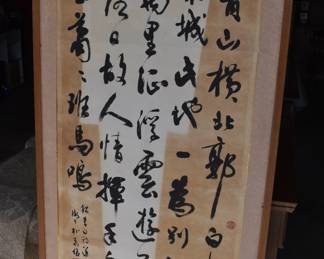 青山橫北郭白
城此地一為別
萬里征浮雲遊
落日故人情揮手
蕭々班馬鳴